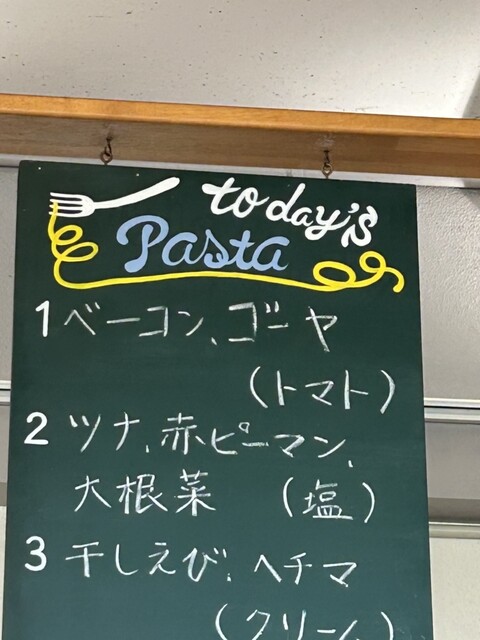 today's
Pasta
1 ベーコン、ゴーヤ
(トマト)
2 ツナ、赤ピーマン、
大根菜 (塩)
3 干しえび、ヘチマ
(クリーム)